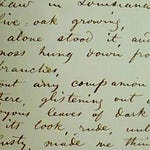 saw in Louisiana
live-oak growing,
alone stood it, and
moss hung down from
branches,
out any companion
there, glistening out
joyous leaves of dark
its look, rude, un
lusty, made me thin